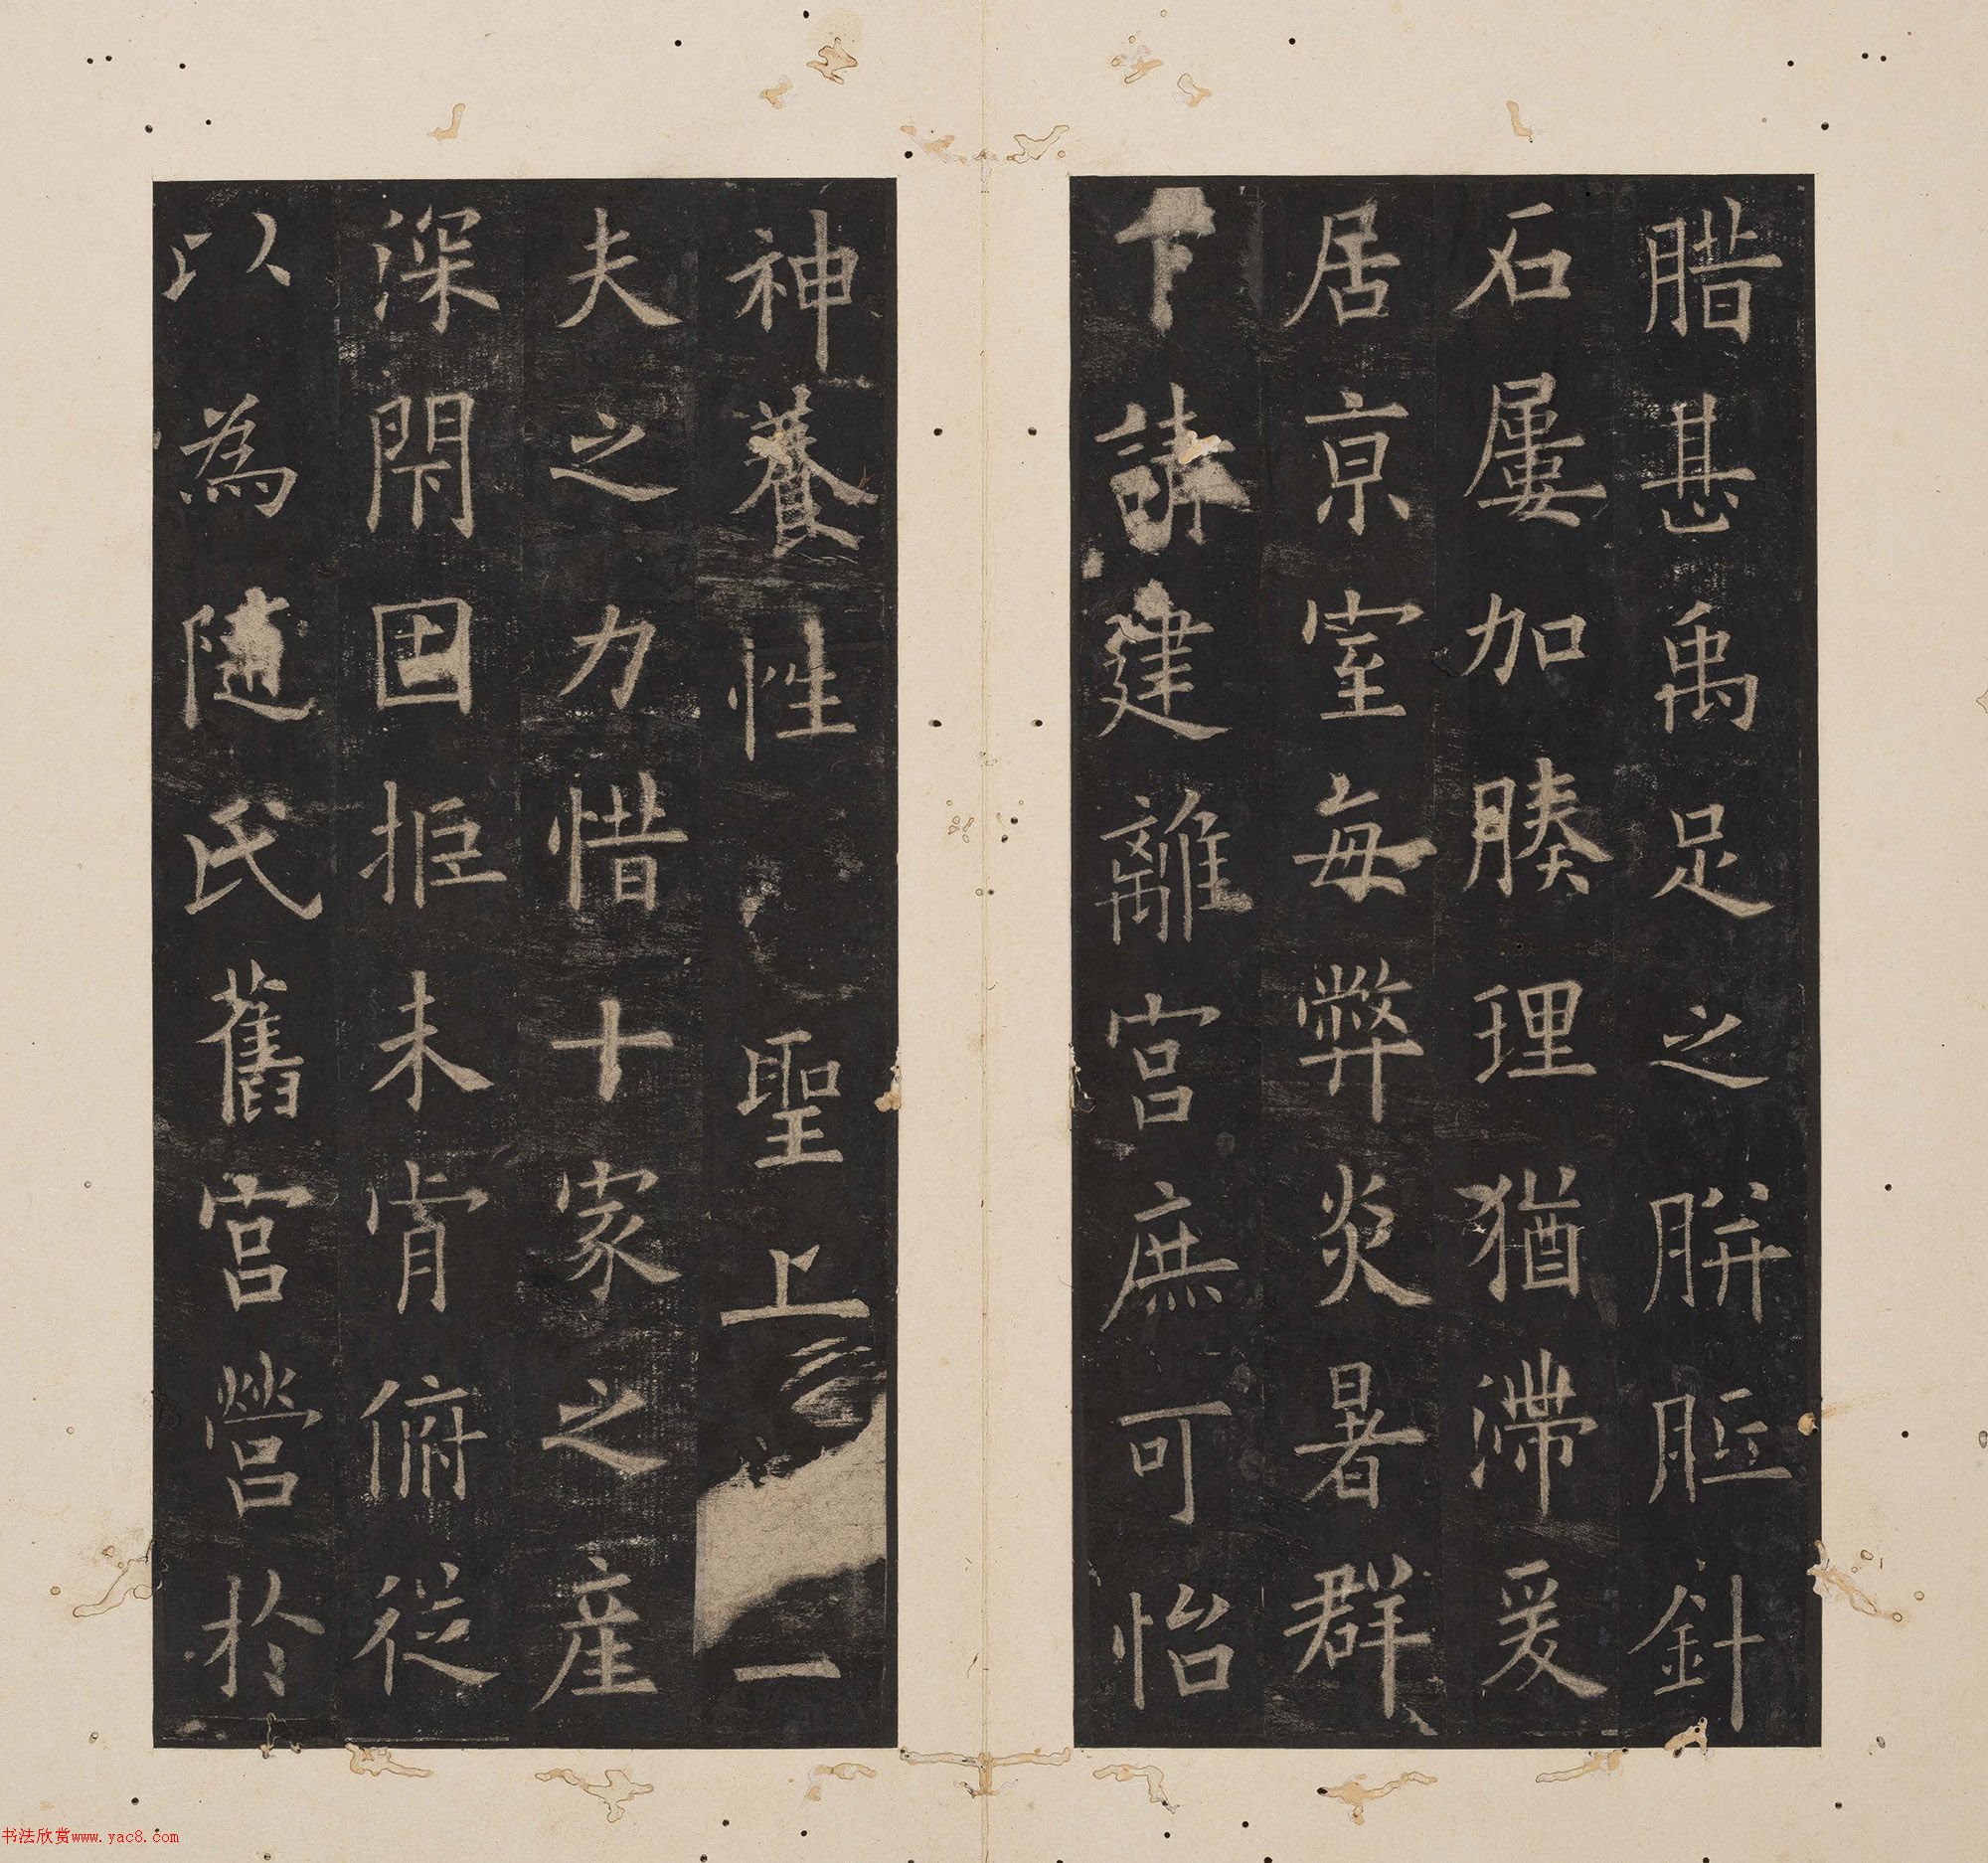 腊甚禹足之胼胝針
石屢加腠理猶滯爰
居京室每弊炎暑群
下請建離宮庶可怡
神養性聖上一
夫之力惜十家之產
深閇固拒未肯俯從
以為隨氏舊宮營於
书法欣赏www.yac8.com